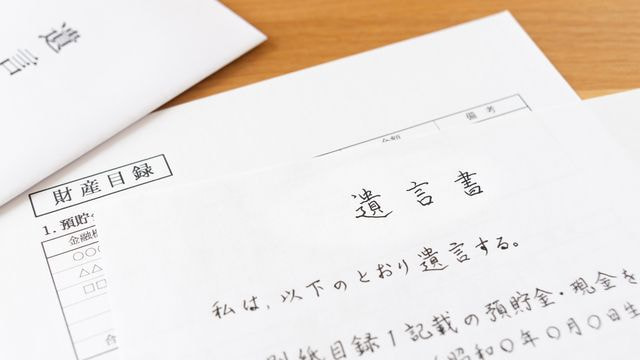 遺言
備考
金額
財産目録
1. 預貯
金融機
○○○
△△
□□
合
遺言書
私は、以下のとおり遺言する。
別紙目録1記載の預貯金・現金を
昭和○年○月○日生